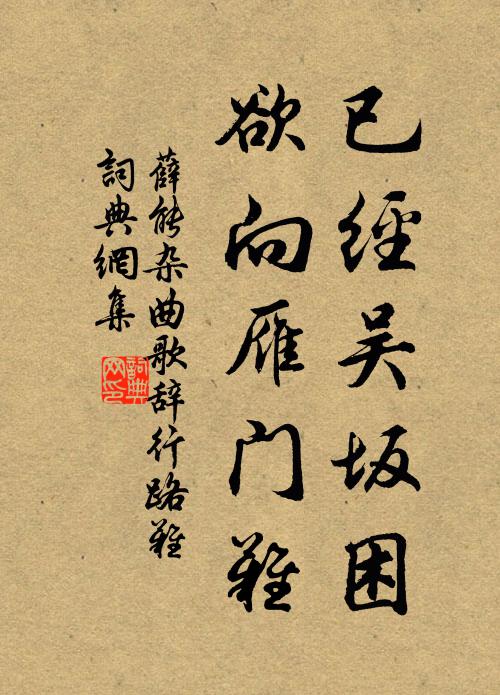 已经吴坂困
欲向雁门难
薛能杂曲歌辞行路难
詞典網集
詞典网印